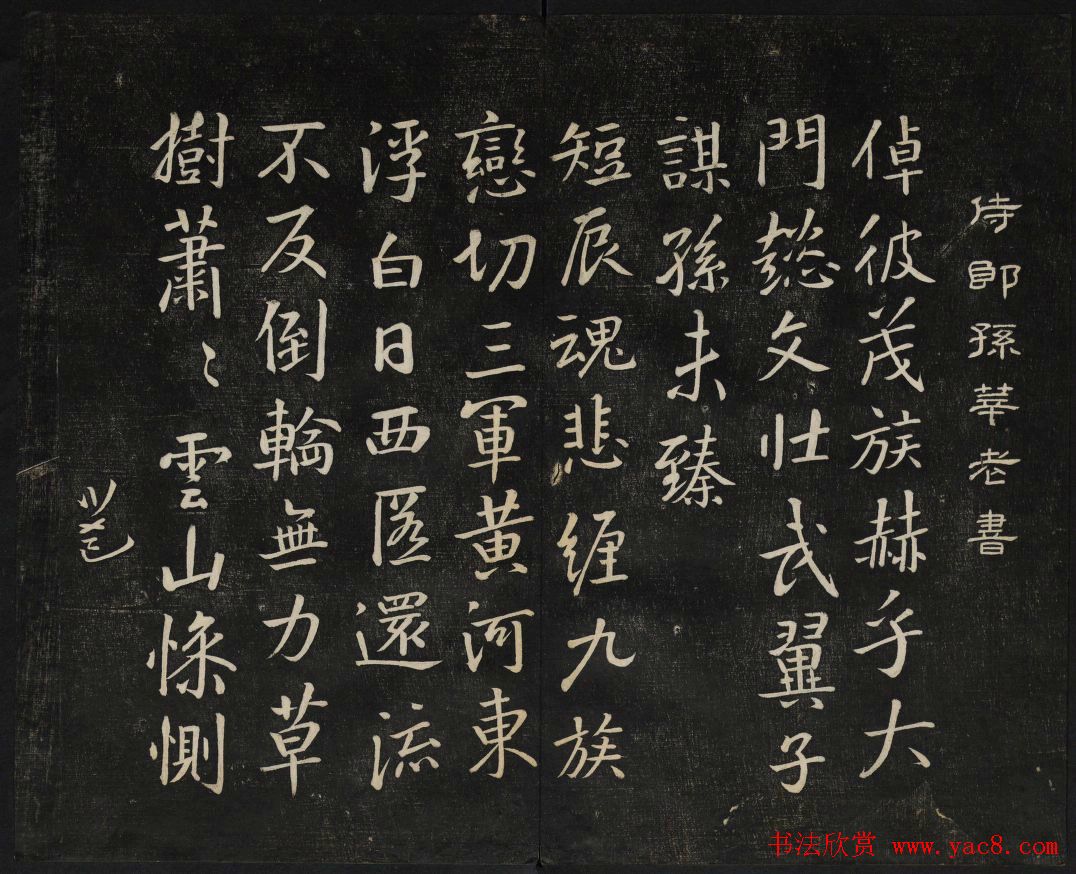 侍郎孫莘老書
倬彼茂族赫乎大
門懿文壯武翼子
謀孫未臻
短辰魂悲纏九族
戀切三軍黃河東
浮白日西匿還流
不反倒輪無力草
樹蕭〻雲山慘惻
书法欣赏 www.yac8.com